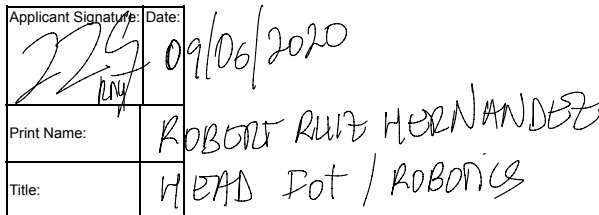 Applicant Signature: Date: 09/06/2020
Print Name: ROBERT RUIZ HERNANDEZ
Title: HEAD IOT / ROBOTICS